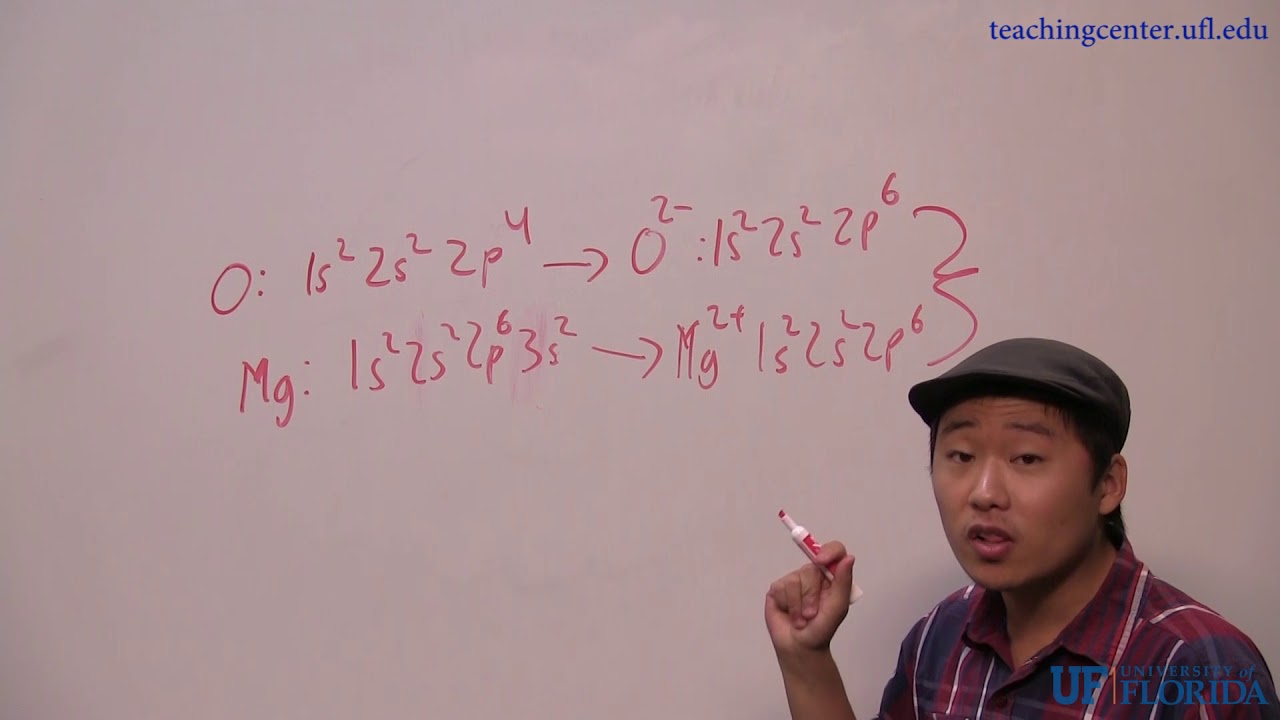 teachingcenter.ufl.edu
O: 1s² 2s² 2p⁴ → O²⁻ : 1s² 2s² 2p⁶
Mg: 1s² 2s² 2p⁶ 3s² → Mg²⁺ 1s² 2s² 2p⁶
UF UNIVERSITY of FLORIDA